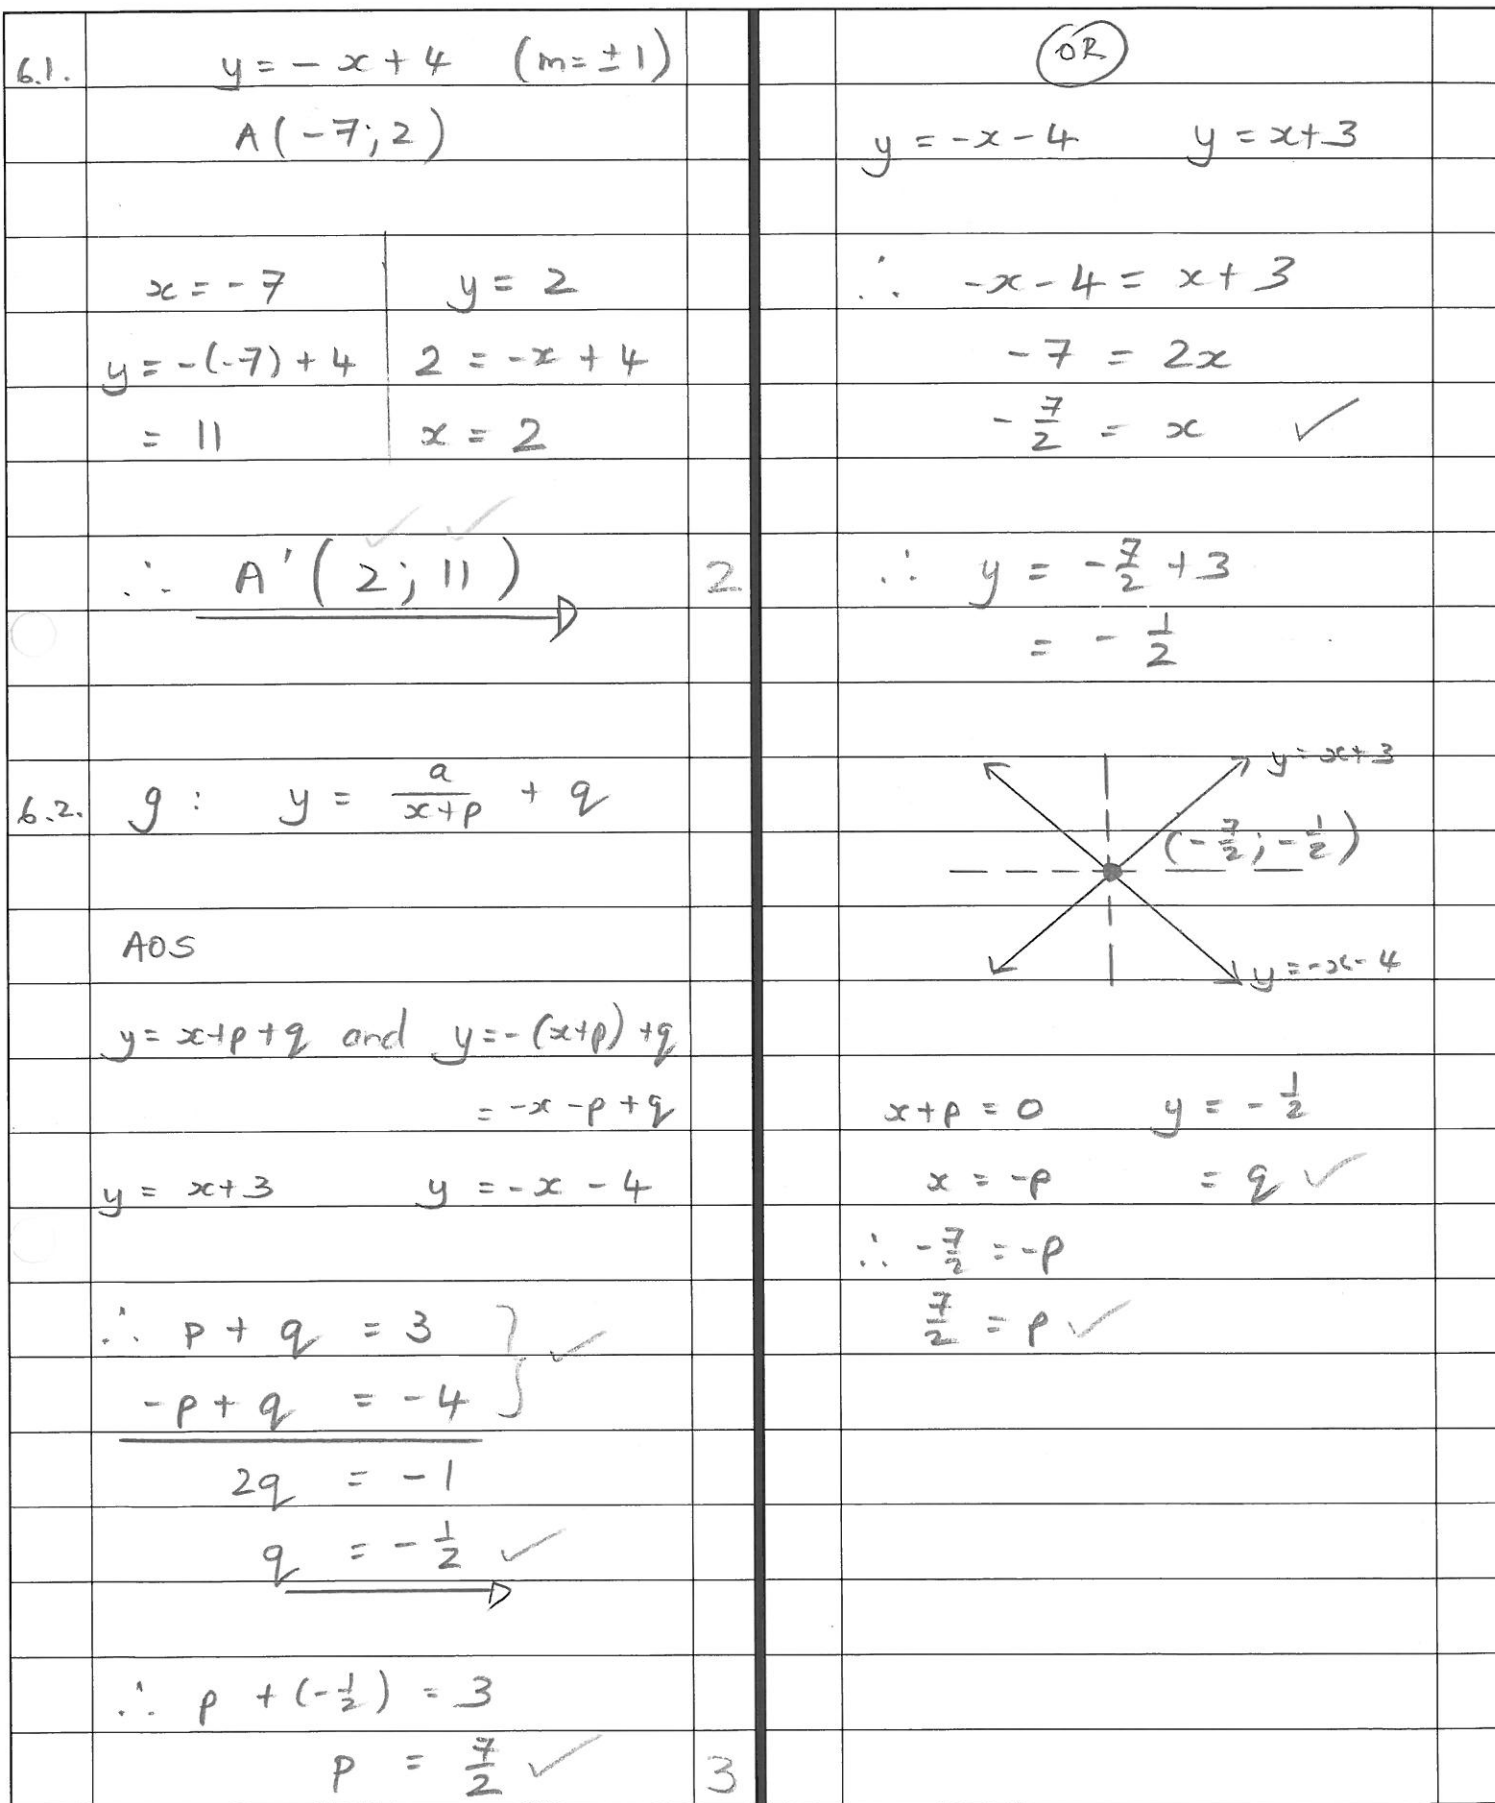 6.1. y = - x + 4 (m = ± 1)
A(-7; 2)
x = -7 | y = 2
y = -(-7) + 4 | 2 = -x + 4
= 11 | x = 2
✓ ✓
∴ A'(2; 11) 2
6.2. g : y = a/(x+p) + q
AOS
y = x+p+q and y = -(x+p)+q
= -x-p+q
y = x+3 y = -x-4
∴ p + q = 3 } ✓
-p + q = -4
2q = -1
q = -1/2 ✓
∴ p + (-1/2) = 3
p = 7/2 ✓ 3
OR
y = -x-4 y = x+3
∴ -x-4 = x+3
-7 = 2x
-7/2 = x ✓
∴ y = -7/2 + 3
= -1/2
y = x+3
(-7/2; -1/2)
y = -x-4
x+p = 0 y = -1/2
x = -p = q ✓
∴ -7/2 = -p
7/2 = p ✓